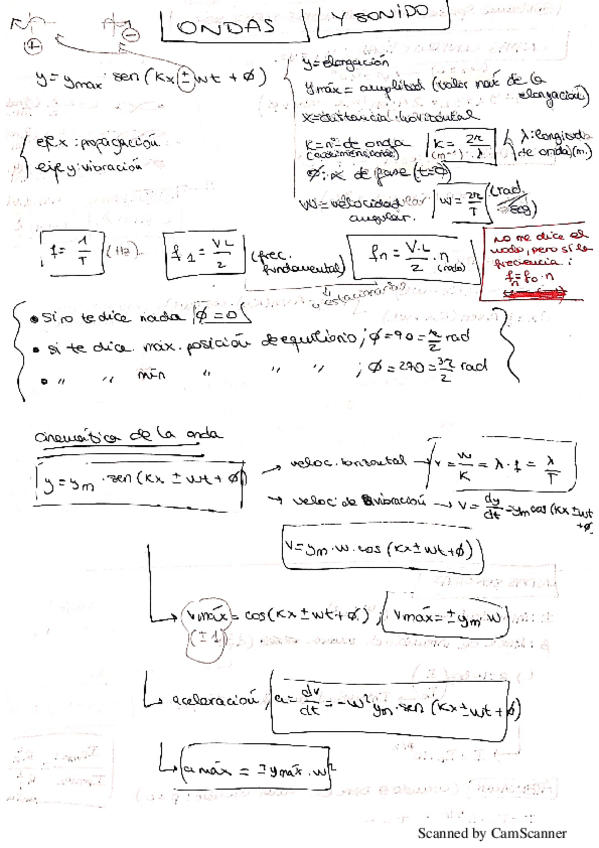 ONDAS Y SONIDO
(+) (-)
y = ymax · sen (Kx ± wt + ϕ)
y = elongación
ymáx = amplitud (valor máx de la elongación)
x = distancia horizontal
K = nº de onda (adimensional) K = 2π/λ (m⁻¹) λ: longitud de onda (m)
ϕ: ∝ de fase (t=0)
W = velocidad angular. W = 2π/T (rad/seg)
eje x: propagación
eje y: vibración
f = 1/T (Hz)
f1 = V·L/2 (frec. fundamental)
fn = V·L/2 · n (nodo)
estacionarias
no me dice el nodo, pero sí la frecuencia:
fn = f0 · n
• Si no te dice nada, ϕ=0
• si te dice máx. posición de equilibrio; ϕ=90=π/2 rad
• " " mín " " " ; ϕ=270=3π/2 rad
cinemática de la onda
y = ym · sen (Kx ± wt + ϕ)
→ veloc. horizontal → v = w/K = λ · f = λ/T
→ veloc de vibración → v = dy/dt = ym cos (Kx ± wt + ϕ)
V = ym · w · cos (Kx ± wt + ϕ)
vmáx = cos (Kx ± wt + ϕ); vmáx = ± ym · w
(±1)
aceleración; a = dv/dt = -w² ym · sen (Kx ± wt + ϕ)
amáx = ± ymáx · w²
Scanned by CamScanner